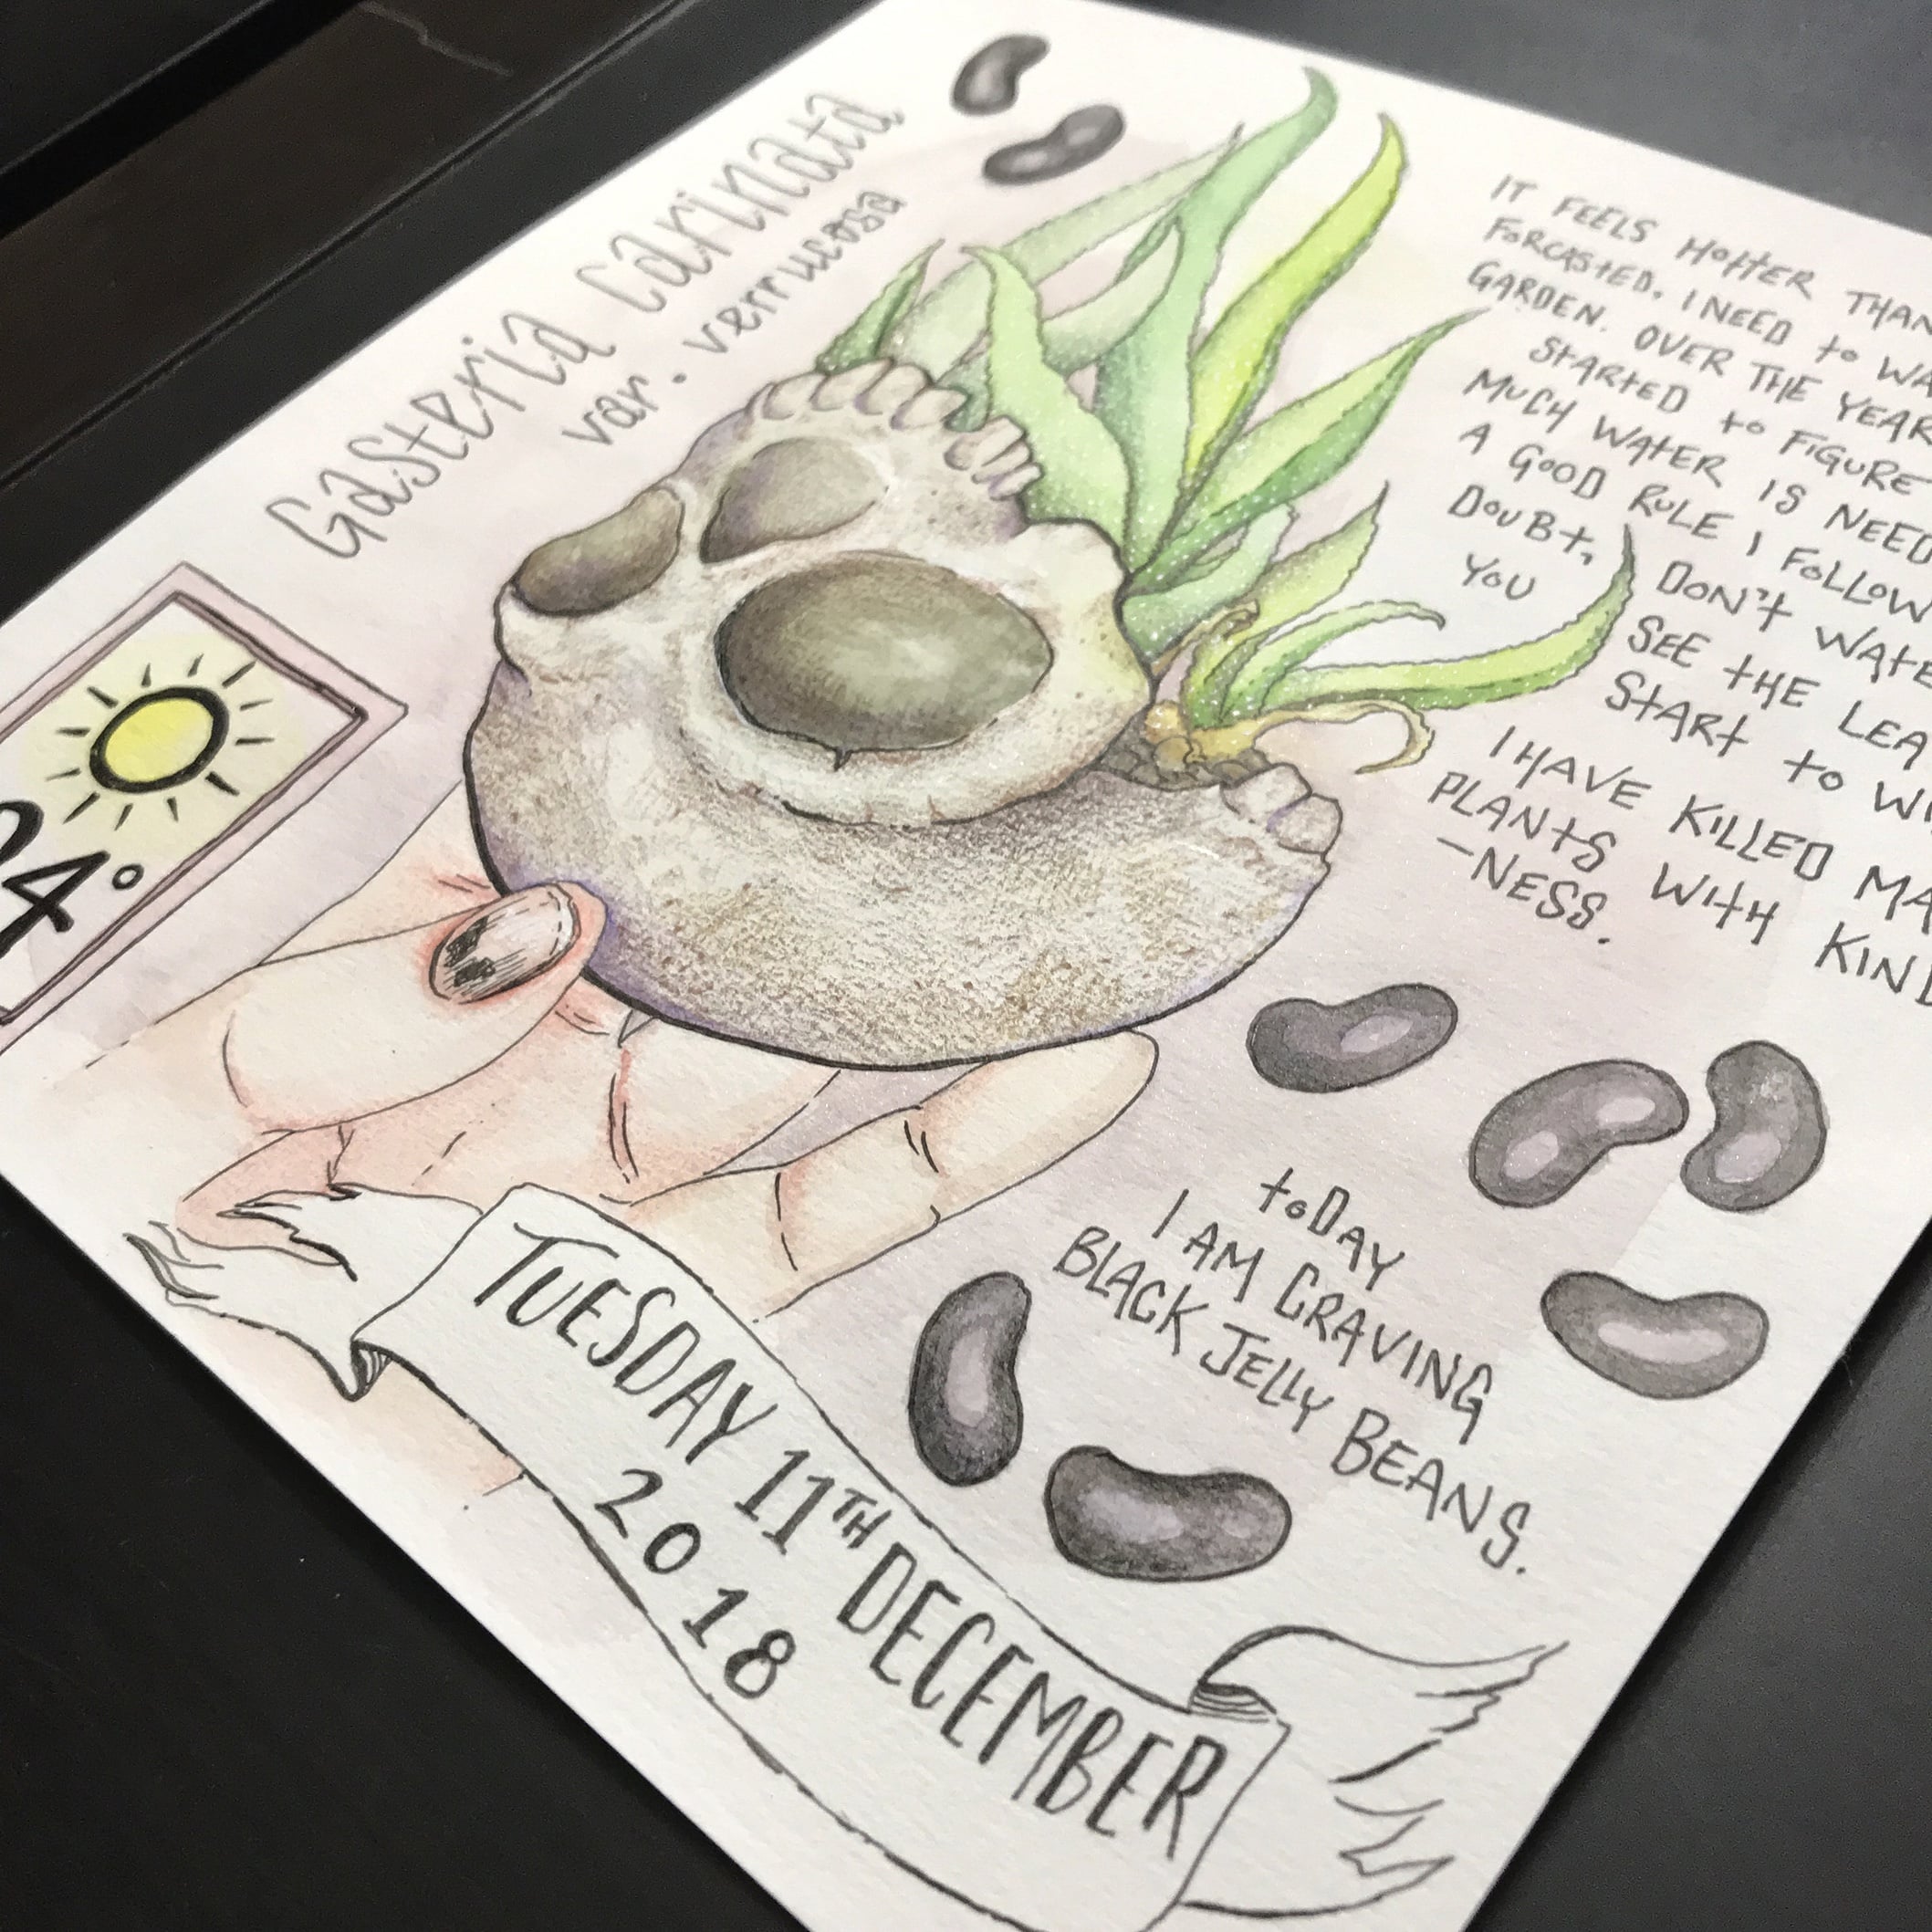 Gasteria carinata
var. verrucosa
IT FEELS HOTTER THAN
FORCASTED. I NEED to
GARDEN. OVER THE
STARTED to FIGURE
MUCH WATER IS
A GOOD RULE I FOLLOW
DOUBT, DON'T
YOU SEE THE
START to
I HAVE KILLED
PLANTS WITH
-NESS.
4°
toDAY
I AM CRAVING
BLACK JELLY BEANS.
TUESDAY 11TH DECEMBER
2018